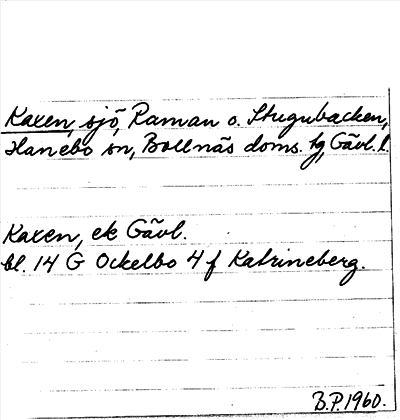 Kaxen, sjö, Raman o. Stugubacken,
Hanebo sn, Bollnäs doms. tg, Gävl. l.
Kaxen, ek Gävl.
bl. 14 G Ockelbo 4 f Katrineberg.
B.P. 1960.